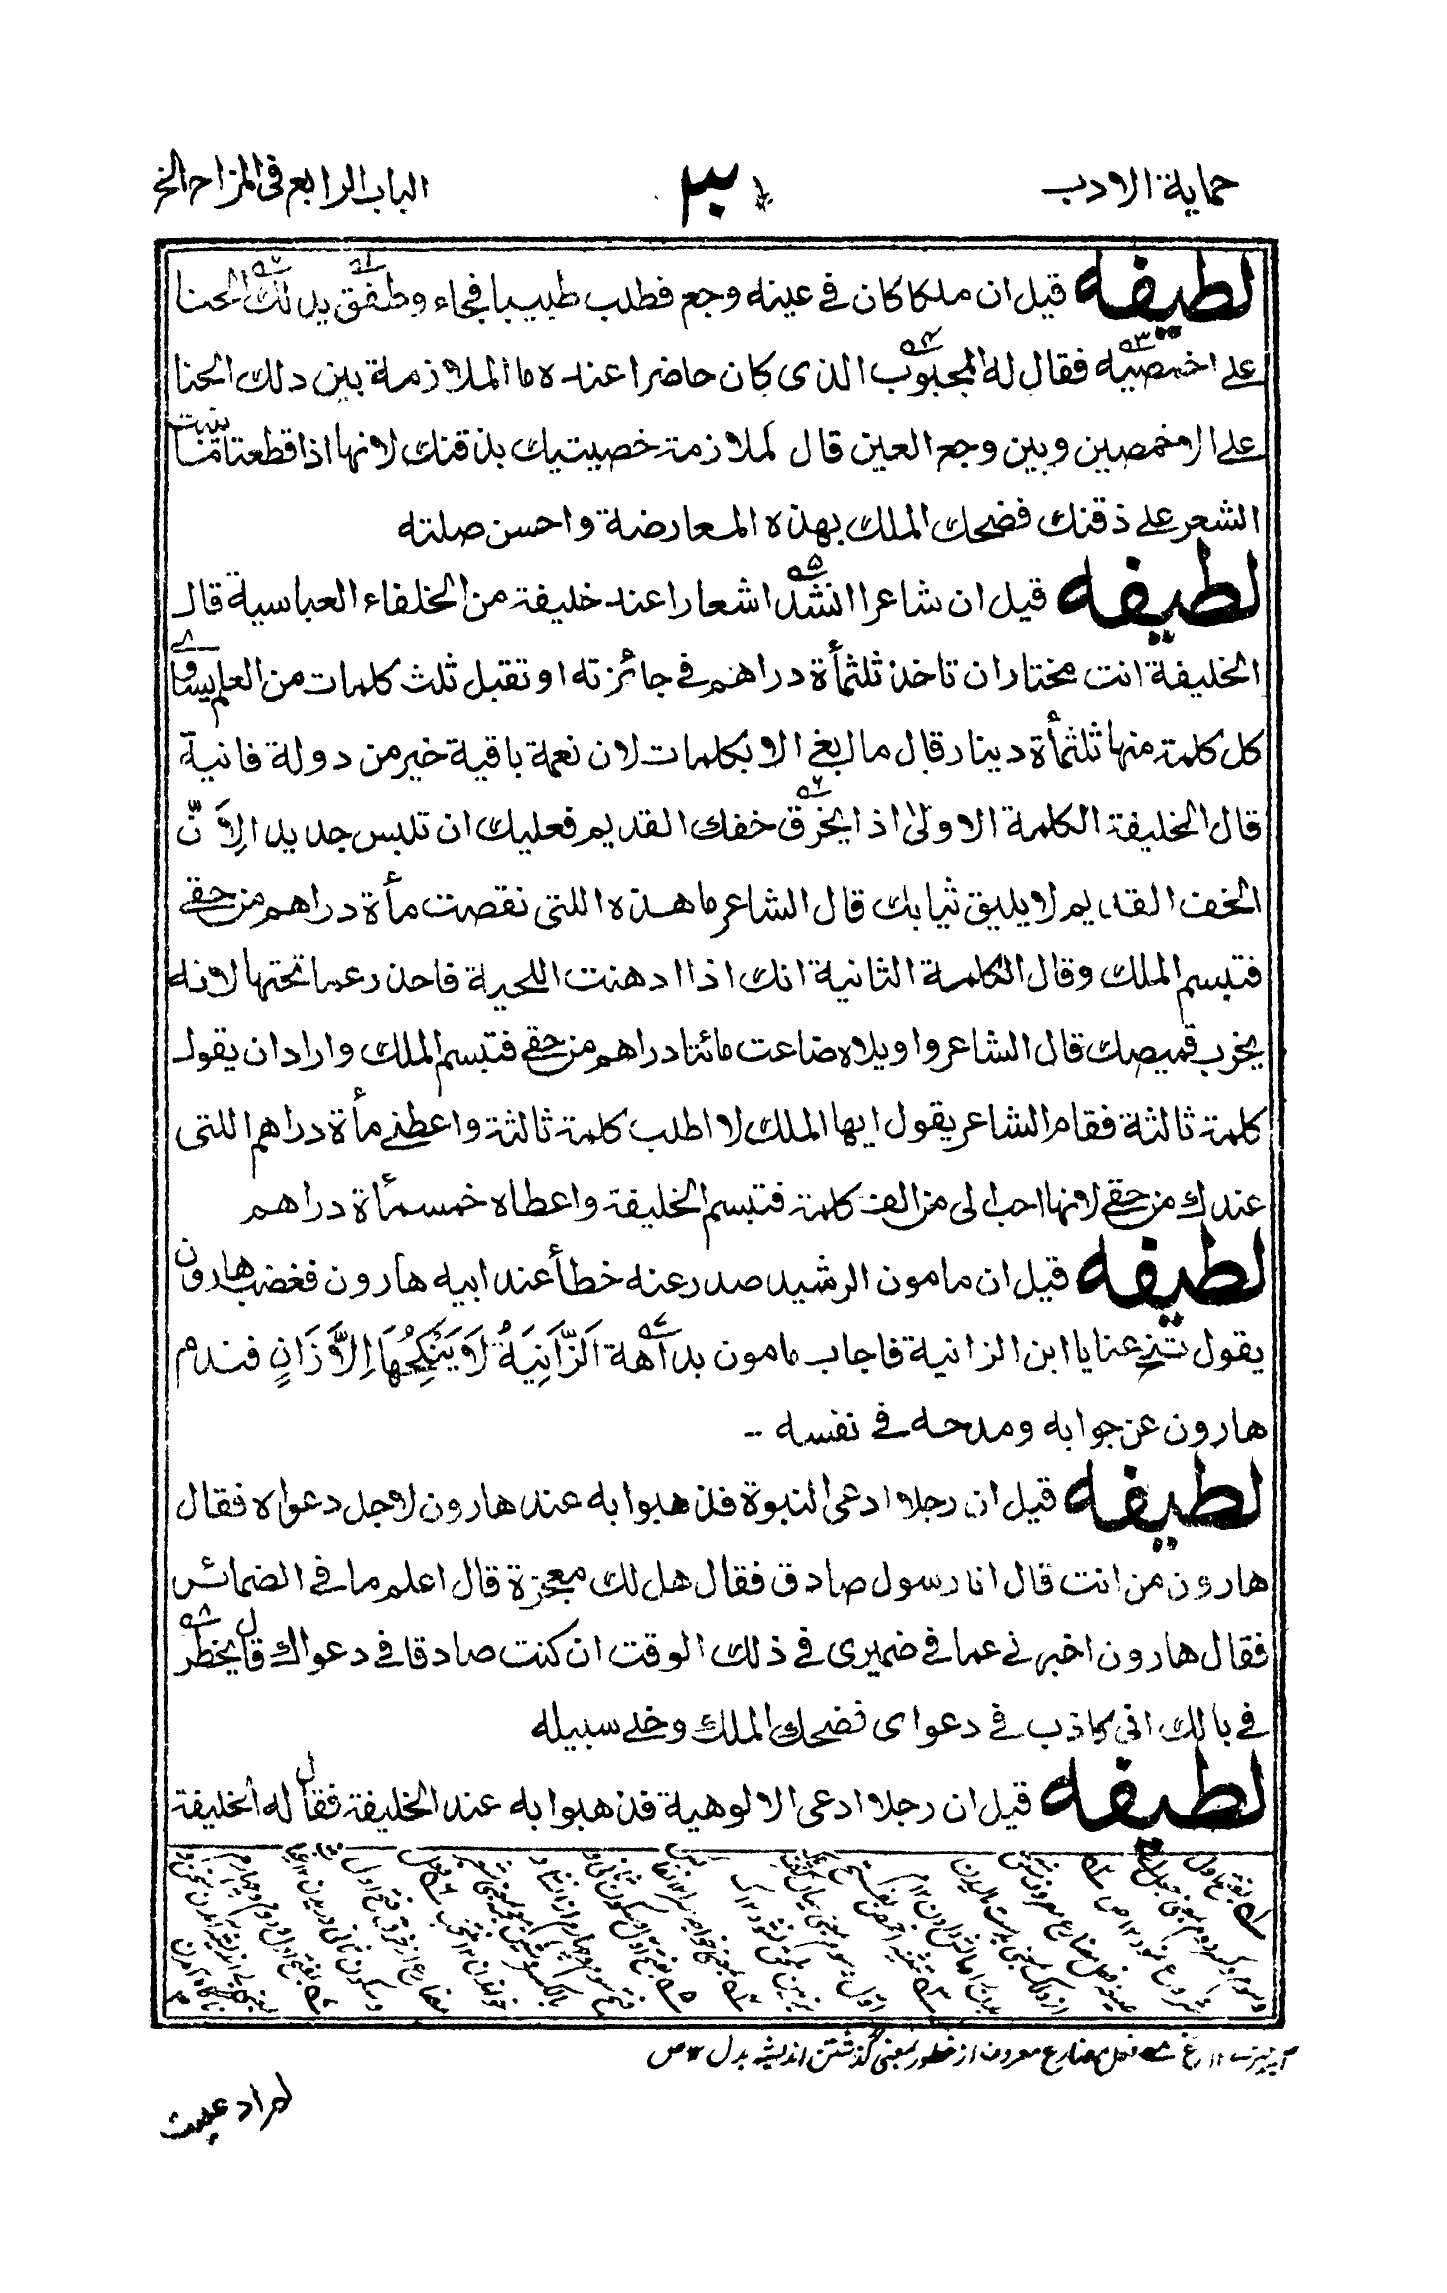 حماية الادب ٣٠ الباب الرابع فى المزاح الخ
لطيفه قيل ان ملكا كان فى عينه وجع فطلب طبيبا فجاء وطفق يدلك الحنا
على اخمصيه فقال له المجبوب الذى كان حاضرا عنده ما الملازمة بين دلك الحنا
على الاخمصين وبين وجع العين قال كملازمة خصيتيك بذقنك لانها اذا قطعتا مانبت
الشعر على ذقنك فضحك الملك بهذه المعارضة واحسن صلته
لطيفه قيل ان شاعرا انشد اشعارا عند خليفة من الخلفاء العباسية قال
الخليفة انت مختار ان تاخذ ثلثمأة دراهم فى جائزته او تقبل ثلث كلمات من العلم يساوى
كل كلمة منها ثلثمأة دينار قال ما ابغى الا بكلمات لان نعمة باقية خير من دولة فانية
قال الخليفة الكلمة الاولى اذا يخرق خفك القديم فعليك ان تلبس جديدا لِاَنّ
الخف القديم لا يليق ثيابك قال الشاعر ما هذه اللتى نقصت مأة دراهم من حقى
فتبسم الملك وقال الكلمة الثانية انك اذا ادهنت اللحية فاحذر عما تحتها لانه
يخرب قميصك قال الشاعر واويلاه ضاعت مائتا دراهم من حقى فتبسم الملك واراد ان يقول
كلمة ثالثة فقام الشاعر يقول ايها الملك لا اطلب كلمة ثالثة واعطنى مأة دراهم اللتى
عندك من حقى لانها احب لى من الف كلمة فتبسم الخليفة واعطاه خمسمأة دراهم
لطيفه قيل ان مامون الرشيد صدر عنه خطأ عند ابيه هارون فغضب هارون
يقول تنح عنا يا ابن الزانية فاجاب مامون بداهة اَلزَّانِيَةُ لَا يَنْكِحُهَا اِلَّا زَانٍ فندم
هارون عن جوابه ومدحه فى نفسه --
لطيفه قيل ان رجلا ادعى النبوة فذهبوا به عند هارون لاجل دعواه فقال
هارون من انت قال انا رسول صادق فقال هل لك معجزة قال اعلم ما فى الضمائر
فقال هارون اخبرنى عما فى ضميرى فى ذلك الوقت ان كنت صادقا فى دعواك قال يخطر
فى بالك انى كاذب فى دعواى فضحك الملك وخلى سبيله
لطيفه قيل ان رجلا ادعى الالوهية فذهبوا به عند الخليفة فقال له الخليفة
فعل مضارع معروف از خطور بمعنى گذشتن انديشه بدل ١٢ ص